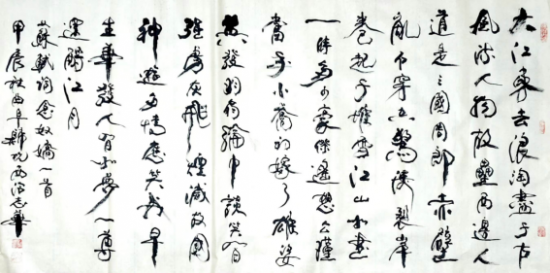 大江東去浪淘盡千古
風流人物故壘西邊人
道是三國周郎赤壁
亂石穿空驚濤裂岸
卷起千堆雪江山如畫
一時多少豪傑遙想公瑾
當年小喬初嫁了雄姿
英發羽扇綸巾談笑間
強虜灰飛煙滅故國
神遊多情應笑我早
生華發人間如夢一尊
還酹江月
蘇軾詞念奴嬌一首
甲辰秋